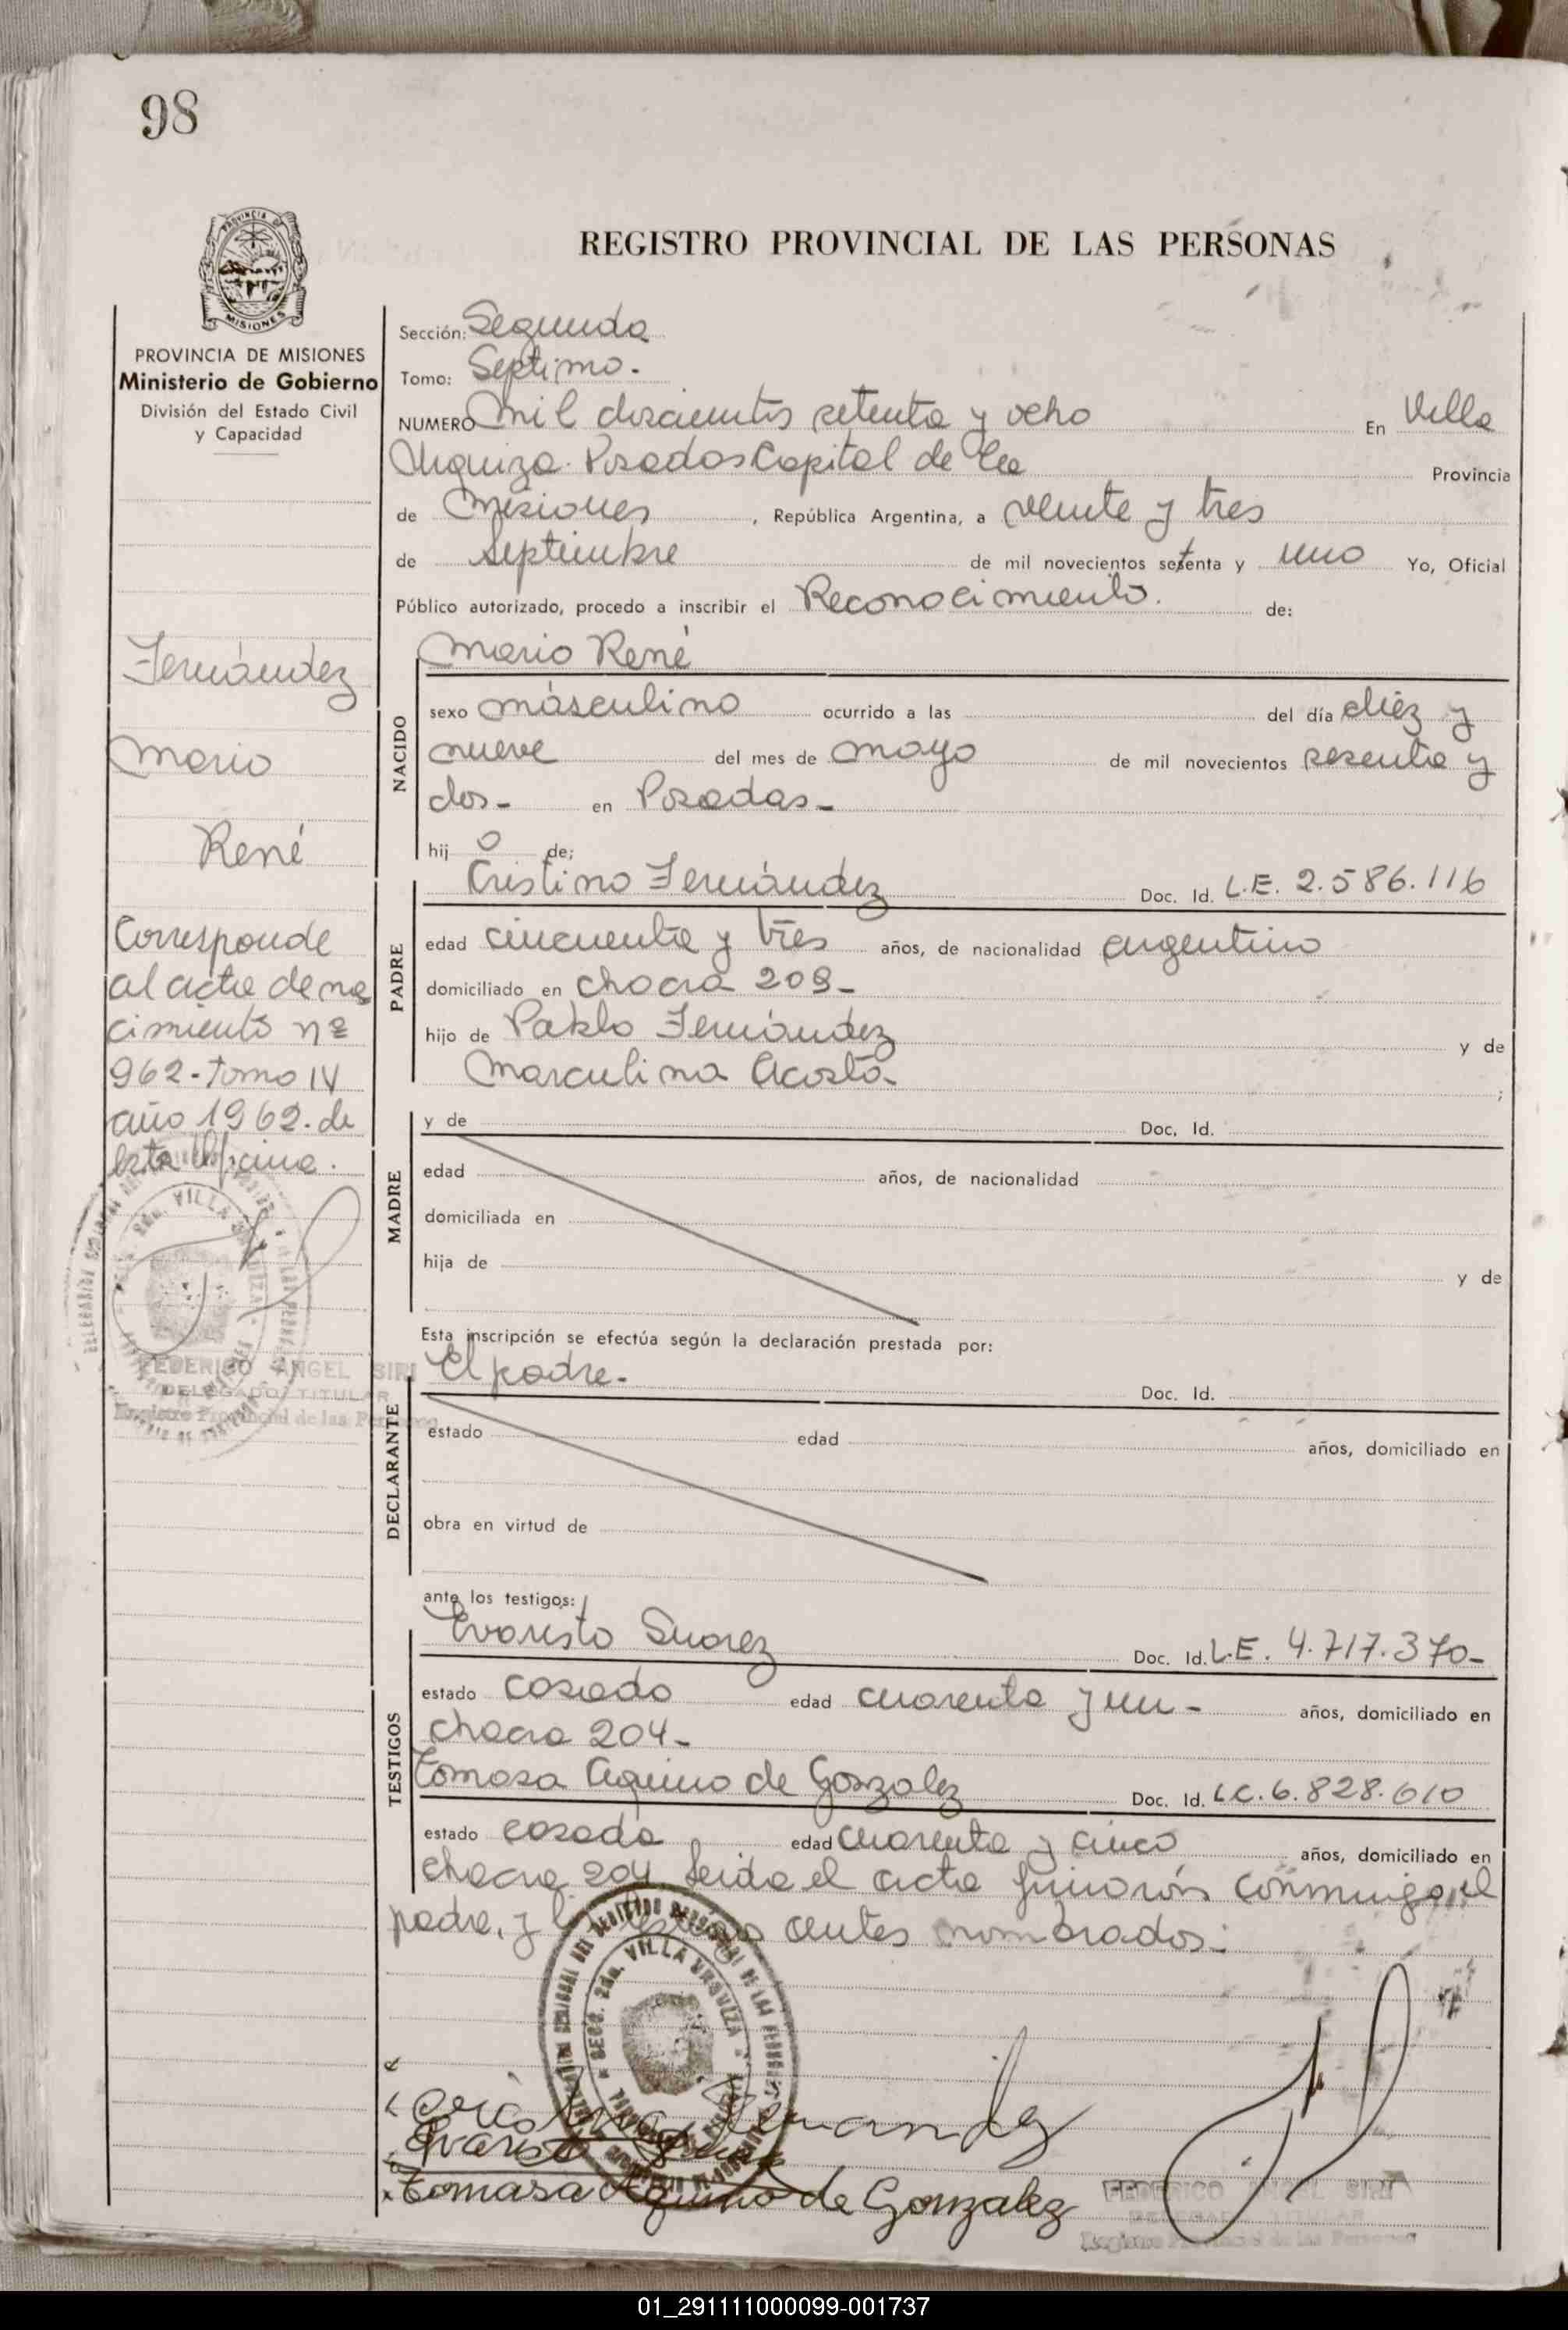 98
PROVINCIA DE
MISIONES
PROVINCIA DE MISIONES
Ministerio de Gobierno
División del Estado Civil
y Capacidad
REGISTRO PROVINCIAL DE LAS PERSONAS
Sección: Segunda
Tomo: Septimo.
NUMERO Mil doscientos setenta y ocho En Villa
Urquiza. Posadas Capital de la Provincia
de Misiones, República Argentina, a veinte y tres
de Septiembre de mil novecientos setenta y uno Yo, Oficial
Público autorizado, procedo a inscribir el Reconocimiento. de:
Fernández
Mario
René
Corresponde
al acta de na
cimiento nº
962-tomo IV
año 1962. de
esta Oficina.
FEDERICO ANGEL SIRI
DELEGADO TITULAR
Registro Provincial de las Personas
NACIDO
Mario René
sexo másculino ocurrido a las del día diez y
nueve del mes de mayo de mil novecientos sesenta y
dos- en Posadas-
hij o de;
PADRE
Cristino Fernández Doc. Id. L.E. 2.586.116
edad cincuenta y tres años, de nacionalidad argentino
domiciliado en chacra 209-
hijo de Pablo Fernández y de
Marculina Acosta- ;
MADRE
y de Doc. Id.
edad años, de nacionalidad
domiciliada en
hija de y de
Esta inscripción se efectúa según la declaración prestada por:
DECLARANTE
El padre- Doc. Id.
estado edad años, domiciliado en
obra en virtud de
ante los testigos:
TESTIGOS
Evaristo Suarez Doc. Id. L.E. 4.717.370-
estado casado edad cuarenta y un- años, domiciliado en
chacra 204-
Tomasa Aquino de Gonzalez Doc. Id. L.C. 6.828.610
estado casada edad cuarenta y cinco años, domiciliado en
chacra 204 leida el acta firmarón conmigo, el
padre, y los testigos antes nombrados:
SECC. 2da. VILLA URQUIZA
Fernandez
Evaristo
Tomasa Aquino de Gonzalez
FEDERICO ANGEL SIRI
DELEGADO TITULAR
Registro Provincial de las Personas
01_291111000099-001737